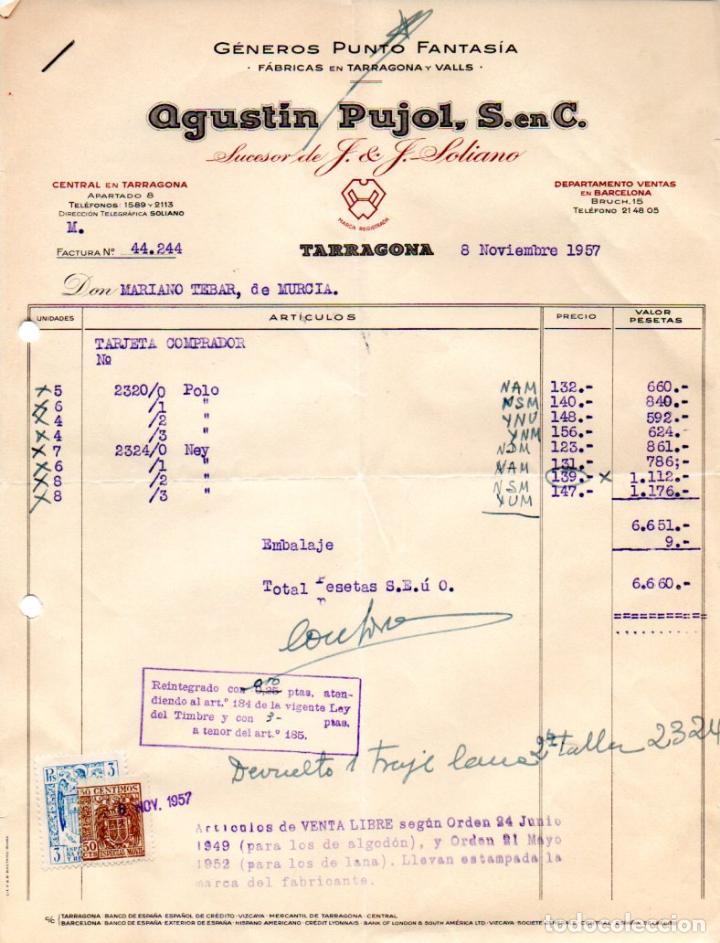 GÉNEROS PUNTO FANTASÍA
· FÁBRICAS EN TARRAGONA Y VALLS ·
Agustín Pujol, S. en C.
Sucesor de J. & J. Soliano
CENTRAL EN TARRAGONA
APARTADO 8
TELÉFONOS: 1589 Y 2113
DIRECCIÓN TELEGRÁFICA SOLIANO
MARCA REGISTRADA
DEPARTAMENTO VENTAS
EN BARCELONA
BRUCH, 15
TELÉFONO 21 48 05
M.
FACTURA Nº 44.244
TARRAGONA 8 Noviembre 1957
Don MARIANO TEBAR, de MURCIA.
UNIDADES ARTÍCULOS PRECIO VALOR PESETAS
TARJETA COMPRADOR
Nº
5 2320/0 Polo NAM 132.- 660.-
6 /1 " NSM 140.- 840.-
4 /2 " YNU 148.- 592.-
4 /3 " YNM 156.- 624.-
7 2324/0 Ney 123.- 861.-
6 /1 " NAM 131.- 786;-
8 /2 " NSM 139.- x 1.112.-
8 /3 " YUM 147.- 1.176.-
6.651.-
Embalaje 9.-
Total pesetas S.E.ú O. 6.660.-
Reintegrado con 0,25 ptas. aten-
diendo al art.º 184 de la vigente Ley
del Timbre y con 3- ptas.
a tenor del art.º 185.
Devuelto 1 traje lana 2ª taller 2324
PTS 3
50 CENTIMOS
8 NOV. 1957
3
50
Artículos de VENTA LIBRE según Orden 24 Junio
1949 (para los de algodón), y Orden 21 Mayo
1952 (para los de lana). Llevan estampada la
marca del fabricante.
C/C TARRAGONA: BANCO DE ESPAÑA · ESPAÑOL DE CRÉDITO · VIZCAYA · MERCANTIL DE TARRAGONA · CENTRAL
BARCELONA: BANCO DE ESPAÑA · EXTERIOR DE ESPAÑA · HISPANO AMERICANO · CRÉDIT LYONNAIS · BANK OF LONDON & SOUTH AMÉRICA LTD · VIZCAYA
todocoleccion